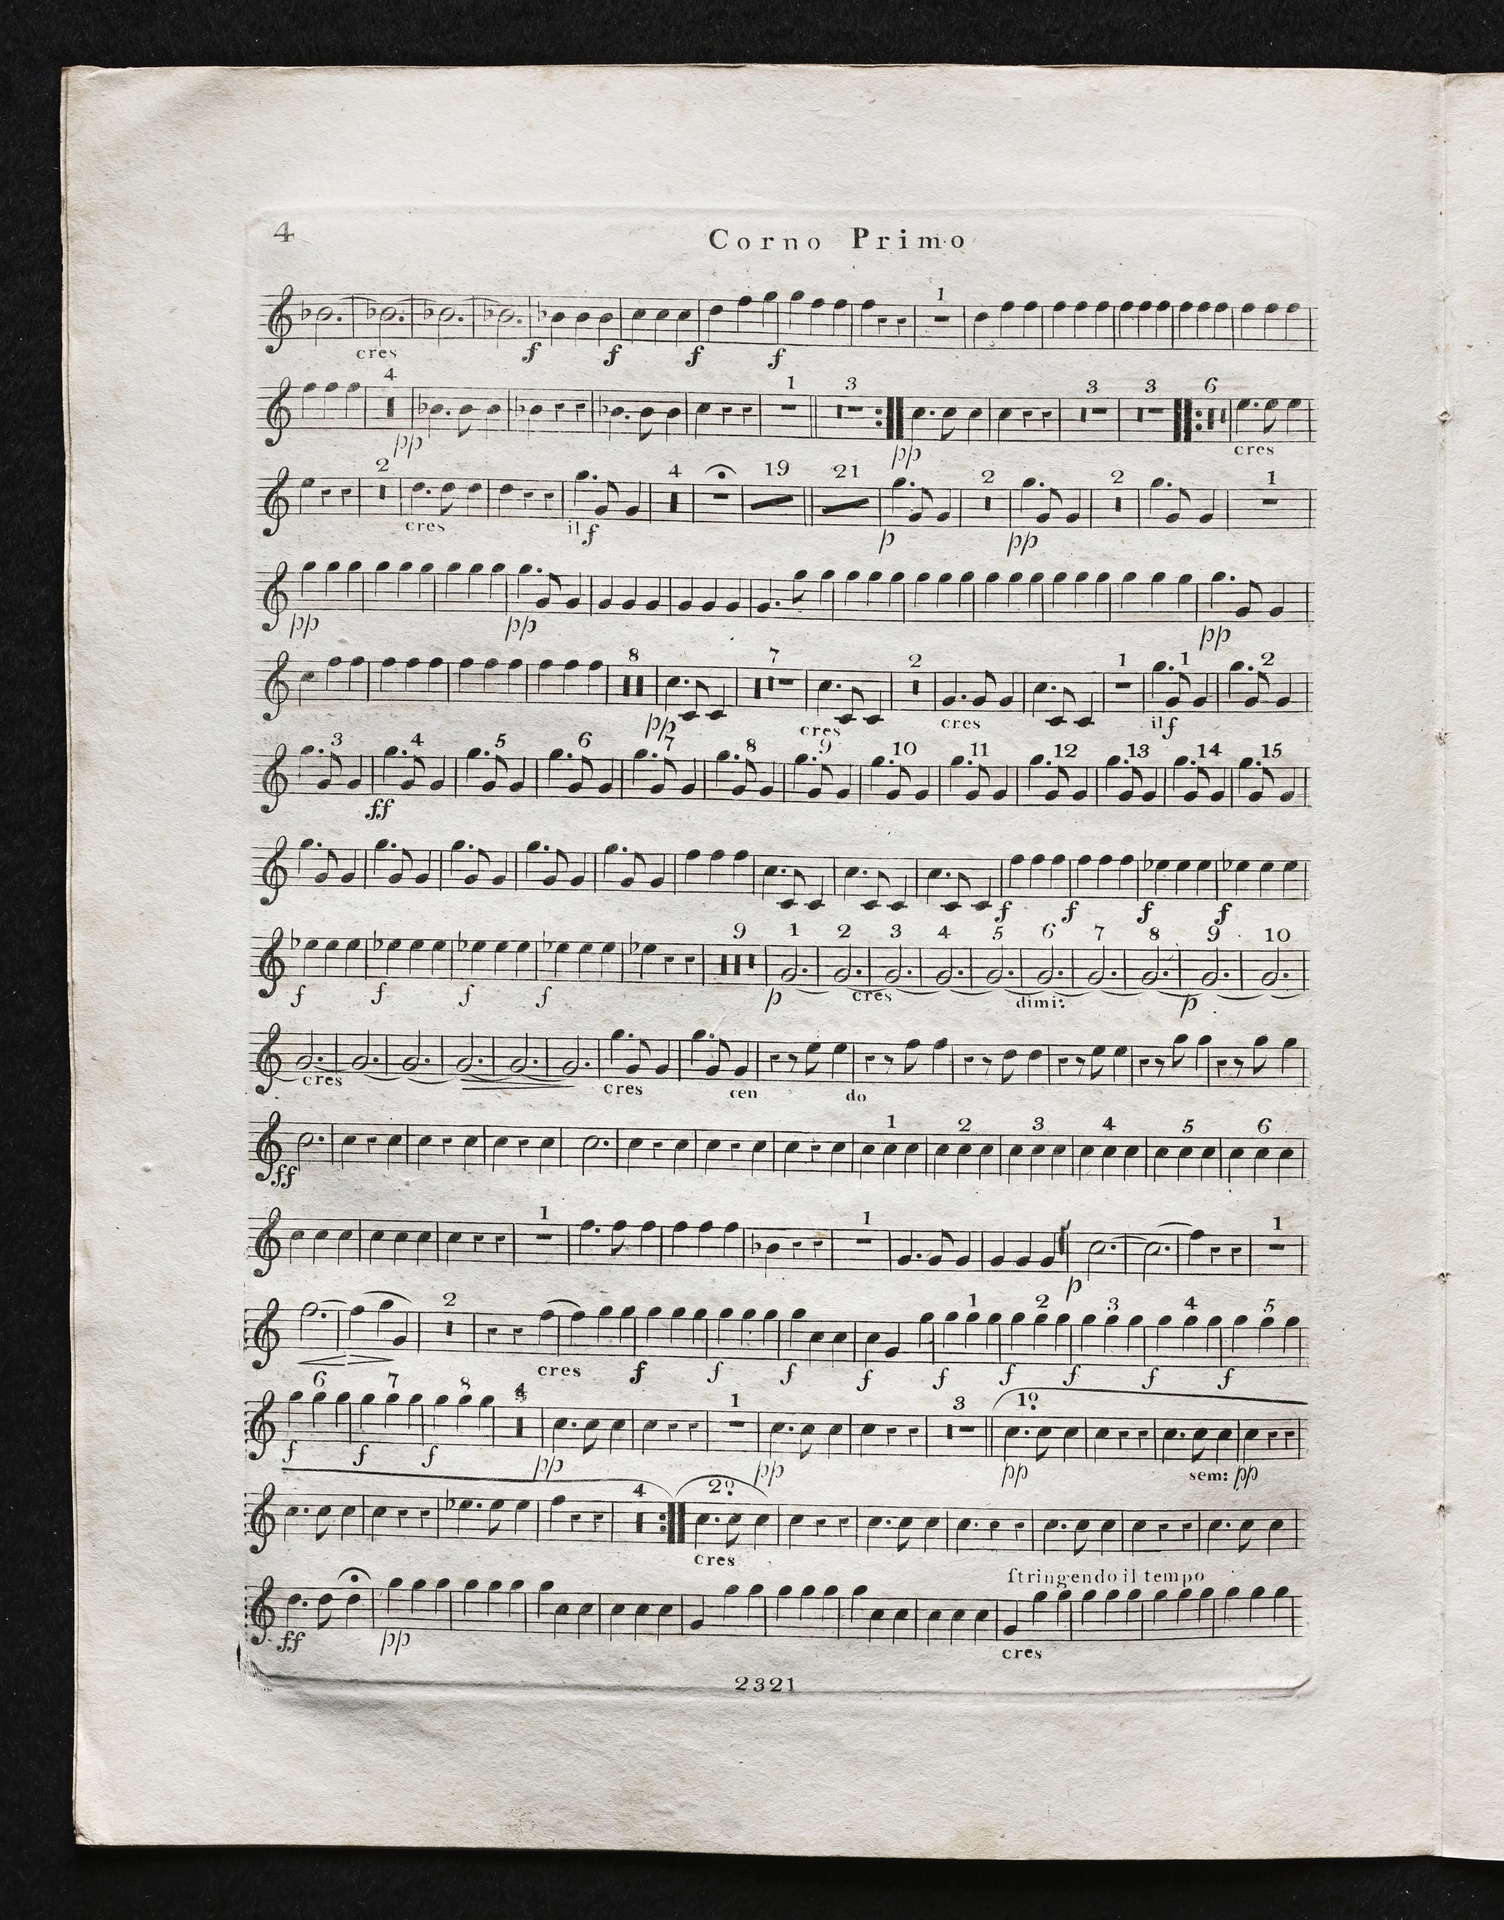 4
Corno Primo
1
cres f f f f
4 1 3 3 3 6
pp pp cres
2 4 19 21 2 2 1
cres il f p pp
pp pp pp
8 7 2 1 1 2
pp cres cres il f
3 4 5 6 7 8 9 10 11 12 13 14 15
ff
f f f f
9 1 2 3 4 5 6 7 8 9 10
f f f f p cres dimi: p
cres cres cen do
1 2 3 4 5 6
ff
1 1 1
p
2 1 2 3 4 5
cres f f f f f f f f f
6 7 8 4 1 3 1º
f f f pp pp pp sem: pp
4 2º
cres
ſtringendo il tempo
ff pp cres
2321